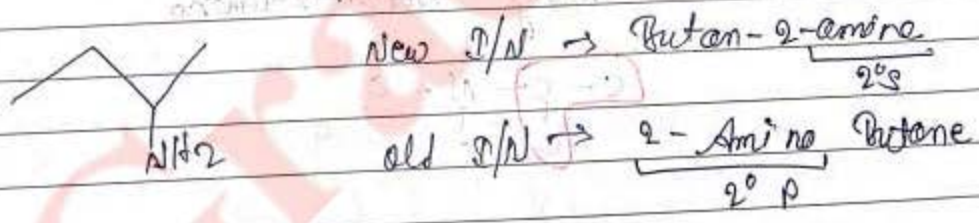 New I/N → Butan-2-amine
2°S
NH2
old I/N → 2-Amino Butane
2° P